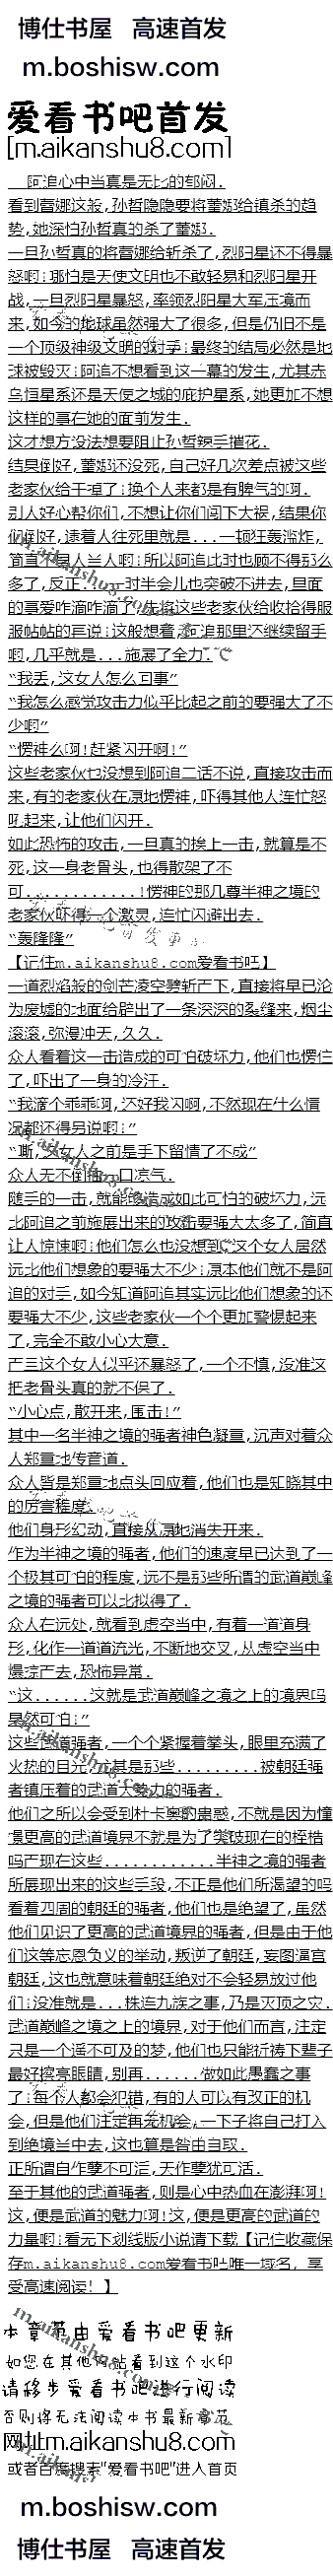 博仕书屋 高速首发
m.boshisw.com
爱看书吧首发
[m.aikanshu8.com]
阿追心中当真是无比的郁闷.
看到蕾娜这般,孙哲隐隐要将蕾娜给镇杀的趋
势,她深怕孙哲真的杀了蕾娜.
一旦孙哲真的将蕾娜给斩杀了,烈阳星还不得暴
怒啊!哪怕是天使文明也不敢轻易和烈阳星开
战,一旦烈阳星暴怒,率领烈阳星大军压境而
来,如今的地球虽然强大了很多,但是仍旧不是
一个顶级神级文明的对手!最终的结局必然是地
球被毁灭!阿追不想看到这一幕的发生,尤其赤
乌恒星系还是天使之城的庇护星系,她更加不想
这样的事在她的面前发生.
这才想方设法想要阻止孙哲辣手摧花.
结果倒好,蕾娜还没死,自己好几次差点被这些
老家伙给干掉了!换个人来都是有脾气的啊.
别人好心帮你们,不想让你们闯下大祸,结果你
们倒好,逮着人往死里就是...一顿狂轰滥炸,
简直不是人当人啊!所以阿追此时也顾不得那么
多了,反正...一时半会儿也突破不进去,里面
的事爱咋滴咋滴了,先将这些老家伙给收拾得服
服帖帖的再说!这般想着,阿追那里还继续留手
啊,几乎就是...施展了全力.
“我丢,这女人怎么回事”
“我怎么感觉攻击力似乎比起之前的要强大了不
少啊”
“愣神么啊!赶紧闪开啊!”
这些老家伙也没想到阿追二话不说,直接攻击而
来,有的老家伙在原地愣神,吓得其他人连忙怒
吼起来,让他们闪开.
如此恐怖的攻击,一旦真的挨上一击,就算是不
死,这一身老骨头,也得散架了不
可...........!愣神的那几尊半神之境的
老家伙吓得一个激灵,连忙闪避出去.
“轰隆隆”
【记住m.aikanshu8.com爱看书吧】
一道烈焰般的剑芒凌空劈斩而下,直接将早已沦
为废墟的地面给辟出了一条深深的裂缝来,烟尘
滚滚,弥漫冲天,久久.
众人看着这一击造成的可怕破坏力,他们也愣住
了,吓出了一身的冷汗.
“我滴个乖乖啊,还好我闪啊,不然现在什么情
况都还得另说啊!”
“嘶,这女人之前是手下留情了不成”
众人无不倒抽一口凉气.
随手的一击,就能够造成如此可怕的破坏力,远
比阿追之前施展出来的攻击要强大太多了,简直
让人惊悚啊!他们怎么也没想到,这个女人居然
远比他们想象的要强大不少!原本他们就不是阿
追的对手,如今知道阿追其实远比他们想象的还
要强大不少,这些老家伙一个个更加警惕起来
了,完全不敢小心大意.
而且这个女人似乎还暴怒了,一个不慎,没准这
把老骨头真的就不保了.
“小心点,散开来,围击!”
其中一名半神之境的强者神色凝重,沉声对着众
人郑重地传音道.
众人皆是郑重地点头回应着,他们也是知晓其中
的厉害程度.
他们身形幻动,直接从原地消失开来.
作为半神之境的强者,他们的速度早已达到了一
个极其可怕的程度,远不是那些所谓的武道巅峰
之境的强者可以比拟得了.
众人在远处,就看到虚空当中,有着一道道身
形,化作一道道流光,不断地交叉,从虚空当中
爆掠而去,恐怖异常.
“这......这就是武道巅峰之境之上的境界吗
果然可怕!”
这些武道强者,一个个紧握着拳头,眼里充满了
火热的目光,尤其是那些.........被朝廷强
者镇压着的武道大势力的强者.
他们之所以会受到杜卡奥的蛊惑,不就是因为憧
憬更高的武道境界不就是为了突破现在的桎梏
吗而现在这些............半神之境的强者
所展现出来的这些手段,不正是他们所渴望的吗
看着四周的朝廷的强者,他们也是绝望了,虽然
他们见识了更高的武道境界的强者,但是由于他
们这等忘恩负义的举动,叛逆了朝廷,妄图逼宫
朝廷,这也就意味着朝廷绝对不会轻易放过他
们!没准就是...株连九族之事,乃是灭顶之灾.
武道巅峰之境之上的境界,对于他们而言,注定
只是一个遥不可及的梦,他们也只能祈祷下辈子
最好擦亮眼睛,别再......做如此愚蠢之事
了!每个人都会犯错,有的人可以有改正的机
会,但是他们注定再无机会,一下子将自己打入
到绝境当中去,这也算是咎由自取.
正所谓自作孽不可活,天作孽犹可活.
至于其他的武道强者,则是心中热血在澎湃啊!
这,便是武道的魅力啊!这,便是更高的武道的
力量啊!看无下划线版小说请下载【记住收藏保
存m.aikanshu8.com爱看书吧唯一域名，享
受高速阅读！】
本章节由爱看书吧更新
如您在其他网站看到这个水印
请移步爱看书吧进行阅读
否则将无法阅读本书最新章节
网址m.aikanshu8.com
或者百度搜索"爱看书吧"进入首页
m.boshisw.com
博仕书屋 高速首发